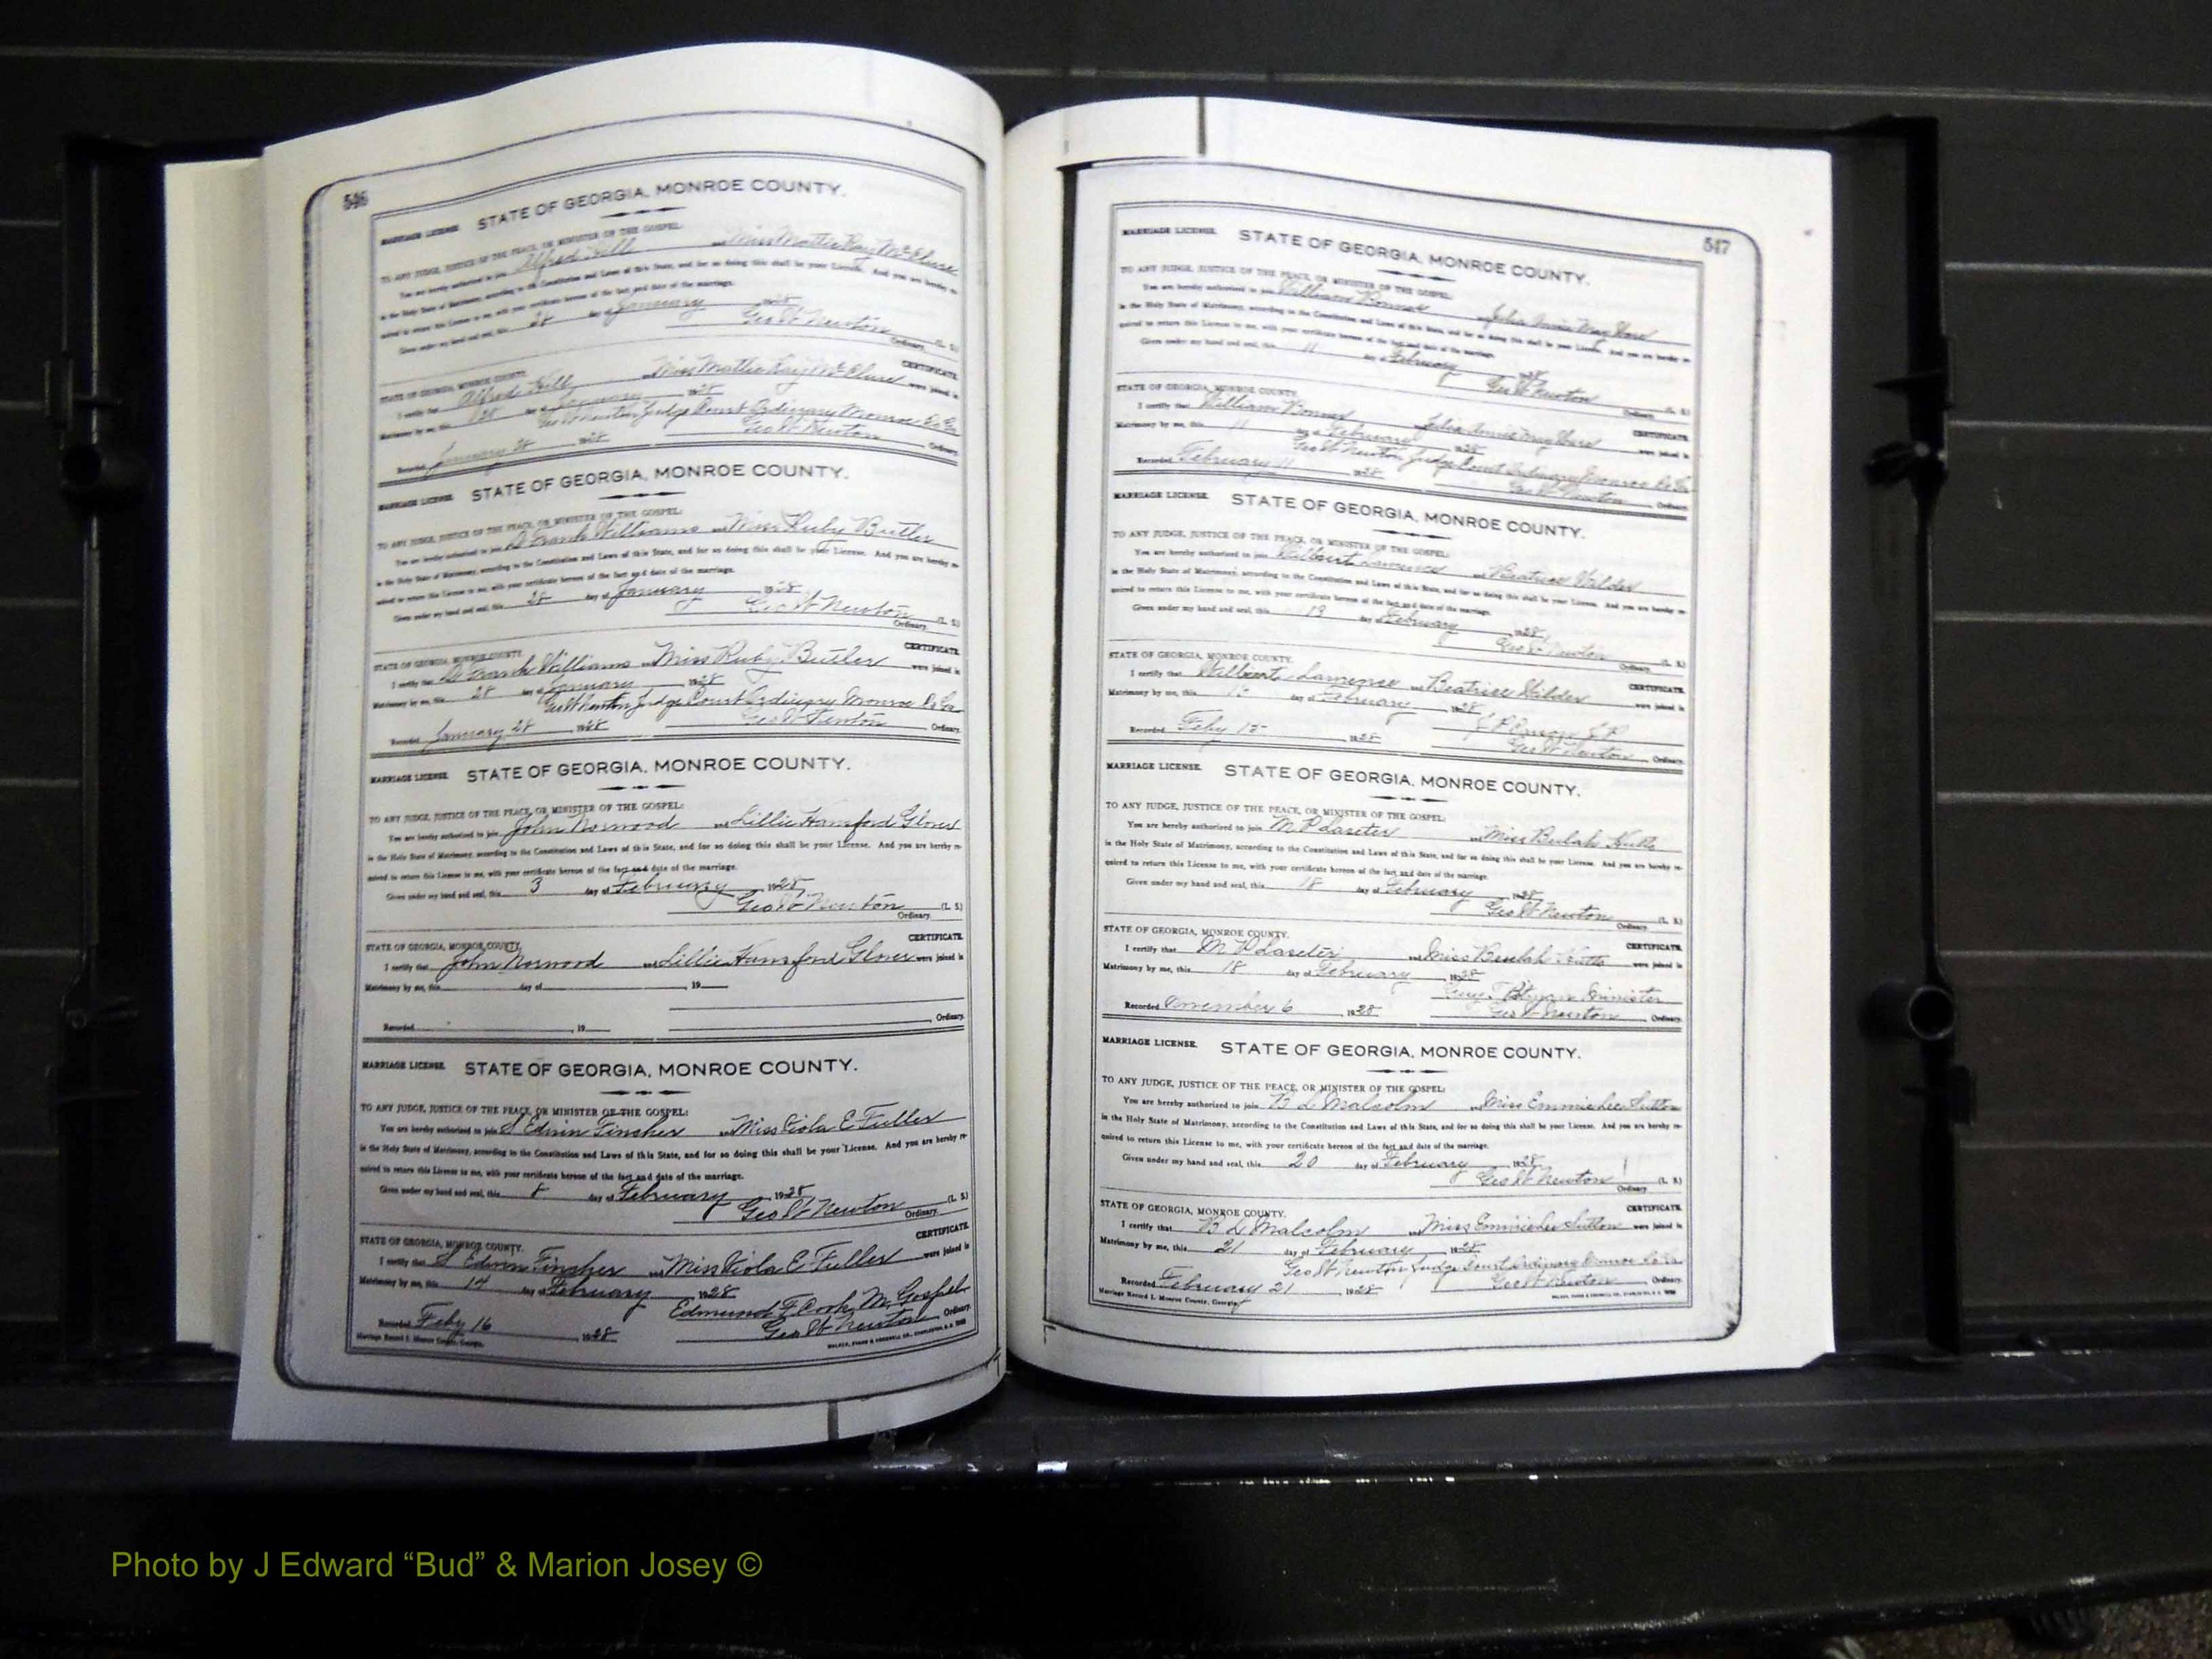 546
STATE OF GEORGIA, MONROE COUNTY.
MARRIAGE LICENSE.
TO ANY JUDGE, JUSTICE OF THE PEACE, OR MINISTER OF THE GOSPEL:
You are hereby authorized to join Alfred Hill and Miss Mattie Kay McClure
in the Holy State of Matrimony, according to the Constitution and Laws of this State, and for so doing this shall be your License. And you are hereby re-
quired to return this License to me, with your certificate hereon of the fact and date of the marriage.
Given under my hand and seal, this 28 day of January 1928
Geo W Newton (L. S.)
Ordinary.
CERTIFICATE.
STATE OF GEORGIA, MONROE COUNTY.
I certify that Alfred Hill and Miss Mattie Kay McClure were joined in
Matrimony by me, this 28 day of January 1928
Geo W Newton Judge Court Ordinary Monroe Co Ga
Geo W Newton
Recorded January 28 1928 Ordinary.
MARRIAGE LICENSE. STATE OF GEORGIA, MONROE COUNTY.
TO ANY JUDGE, JUSTICE OF THE PEACE, OR MINISTER OF THE GOSPEL:
You are hereby authorized to join Frank Williams and Miss Ruby Butler
in the Holy State of Matrimony, according to the Constitution and Laws of this State, and for so doing this shall be your License. And you are hereby re-
quired to return this License to me, with your certificate hereon of the fact and date of the marriage.
Given under my hand and seal, this 28 day of January 1928
Geo W Newton (L. S.)
Ordinary.
CERTIFICATE.
STATE OF GEORGIA, MONROE COUNTY.
I certify that Frank Williams and Miss Ruby Butler were joined in
Matrimony by me, this 28 day of January 1928
Geo W Newton Judge Court Ordinary Monroe Co Ga
Geo W Newton
Recorded January 28 1928 Ordinary.
MARRIAGE LICENSE. STATE OF GEORGIA, MONROE COUNTY.
TO ANY JUDGE, JUSTICE OF THE PEACE, OR MINISTER OF THE GOSPEL:
You are hereby authorized to join John Norwood and Lillie Hansford Glover
in the Holy State of Matrimony, according to the Constitution and Laws of this State, and for so doing this shall be your License. And you are hereby re-
quired to return this License to me, with your certificate hereon of the fact and date of the marriage.
Given under my hand and seal, this 3 day of February 1928
Geo W Newton (L. S.)
Ordinary.
CERTIFICATE.
STATE OF GEORGIA, MONROE COUNTY.
I certify that John Norwood and Lillie Hansford Glover were joined in
Matrimony by me, this day of , 19
Recorded , 19 Ordinary.
MARRIAGE LICENSE. STATE OF GEORGIA, MONROE COUNTY.
TO ANY JUDGE, JUSTICE OF THE PEACE, OR MINISTER OF THE GOSPEL:
You are hereby authorized to join S Edwin Fincher and Miss Viola E Fuller
in the Holy State of Matrimony, according to the Constitution and Laws of this State, and for so doing this shall be your License. And you are hereby re-
quired to return this License to me, with your certificate hereon of the fact and date of the marriage.
Given under my hand and seal, this 8 day of February , 1928
Geo W Newton (L. S.)
Ordinary.
CERTIFICATE.
STATE OF GEORGIA, MONROE COUNTY.
I certify that S Edwin Fincher and Miss Viola E Fuller were joined in
Matrimony by me, this 14 day of February 1928
Edmund F Cook, M. Gospel
Recorded Feby 16 , 1928 Geo W Newton Ordinary.
Marriage Record I. Monroe County, Georgia.
547
MARRIAGE LICENSE. STATE OF GEORGIA, MONROE COUNTY.
TO ANY JUDGE, JUSTICE OF THE PEACE, OR MINISTER OF THE GOSPEL:
You are hereby authorized to join William Bonner Julia Annie May
in the Holy State of Matrimony, according to the Constitution and Laws of this State, and for so doing this shall be your License. And you are hereby re-
quired to return this License to me, with your certificate hereon of the fact and date of the marriage.
Given under my hand and seal, this 11 day of February 1928
Geo W Newton (L. S.)
Ordinary.
STATE OF GEORGIA, MONROE COUNTY.
CERTIFICATE.
I certify that William Bonner Julia Annie May were joined in
Matrimony by me, this 11 day of February 1928
Geo W Newton Judge Court Ordinary Monroe Co Ga
Recorded February 11 1928 Geo W Newton Ordinary.
MARRIAGE LICENSE. STATE OF GEORGIA, MONROE COUNTY.
TO ANY JUDGE, JUSTICE OF THE PEACE, OR MINISTER OF THE GOSPEL:
You are hereby authorized to join Wilbert Lawrence and Beatrice Wilder
in the Holy State of Matrimony, according to the Constitution and Laws of this State, and for so doing this shall be your License. And you are hereby re-
quired to return this License to me, with your certificate hereon of the fact and date of the marriage.
Given under my hand and seal, this 13 day of February 1928
Geo W Newton (L. S.)
Ordinary.
STATE OF GEORGIA, MONROE COUNTY.
CERTIFICATE.
I certify that Wilbert Lawrence and Beatrice Wilder were joined in
Matrimony by me, this day of February , 1928
J P
Recorded Feby , 1928 Geo W Newton Ordinary.
MARRIAGE LICENSE. STATE OF GEORGIA, MONROE COUNTY.
TO ANY JUDGE, JUSTICE OF THE PEACE, OR MINISTER OF THE GOSPEL:
You are hereby authorized to join M P Laseter and Miss Beulah
in the Holy State of Matrimony, according to the Constitution and Laws of this State, and for so doing this shall be your License. And you are hereby re-
quired to return this License to me, with your certificate hereon of the fact and date of the marriage.
Given under my hand and seal, this 18 day of February 1928
Geo W Newton (L. S.)
Ordinary.
STATE OF GEORGIA, MONROE COUNTY.
CERTIFICATE.
I certify that M P Laseter and Miss Beulah were joined in
Matrimony by me, this 18 day of February 1928
Minister
Recorded November 6 , 1928 Geo W Newton Ordinary.
MARRIAGE LICENSE. STATE OF GEORGIA, MONROE COUNTY.
TO ANY JUDGE, JUSTICE OF THE PEACE, OR MINISTER OF THE GOSPEL:
You are hereby authorized to join B L Malcolm and Miss Emmielee Sutton
in the Holy State of Matrimony, according to the Constitution and Laws of this State, and for so doing this shall be your License. And you are hereby re-
quired to return this License to me, with your certificate hereon of the fact and date of the marriage.
Given under my hand and seal, this 20 day of February 1928
Geo W Newton (L. S.)
Ordinary.
STATE OF GEORGIA, MONROE COUNTY.
CERTIFICATE.
I certify that B L Malcolm and Miss Emmielee Sutton were joined in
Matrimony by me, this 21 day of February , 1928
Geo W Newton Judge Court Ordinary Monroe Co Ga
Recorded February 21 1928 Geo W Newton Ordinary.
Marriage Record I. Monroe County, Georgia.
Photo by J Edward “Bud” & Marion Josey ©